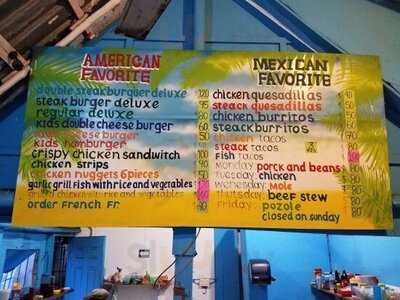 AMERICAN
FAVORITE
double steak burguer deluxe 120
steak burger deluxe 95
regular deluxe 80
kids double cheese burger 60
cheese burger
kids hamburger
crispy chicken sandwitch 100
chicken strips
chicken nuggets 6pieces
garlic grill fish with rice and vegetables
chicken with rice and vegetables
order French Fr.
MEXICAN
FAVORITE
chicken quesadillas
steack quesadillas
chicken burritos
steack burritos
chicken tacos
steack tacos
fish tacos
monday porck and beans
tuesday chicken
wednesday mole
thursday beer stew
Friday pozole
closed on sunday